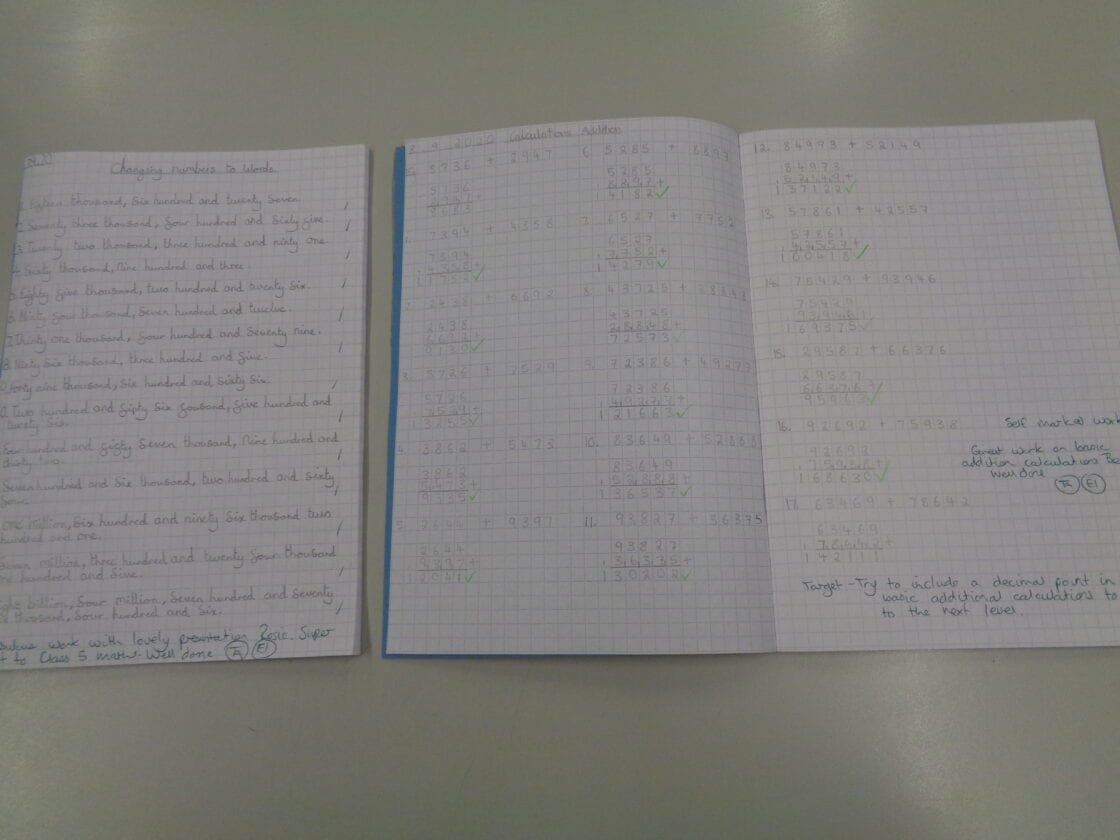 Changing numbers to Words
thousand, Six hundred and twenty Seven.
Seventy three thousand, Four hundred and Sixty Five.
3. Twenty two thousand, three hundred and ninty one
Sixty thousand, nine hundred and three.
Eighty Five thousand, two hundred and twenty Six.
Ninty Four thousand, Seven hundred and twelve.
7. Thirty one thousand, Four hundred and Seventy nine.
8. Ninty Six thousand, three hundred and Five.
Forty nine thousand, Six hundred and Sixty Six.
Two hundred and Fifty Six Fousand, Five hundred and
twenty Six.
Four hundred and Seven thousand, Nine hundred and
thirty two.
Seven hundred and Six thousand, two hundred and Sixty
One million, Six hundred and ninety Six thousand two
hundred and one.
million, three hundred and twenty Four thousand
one hundred and Five.
billion, Four million, Seven hundred and Seventy
thousand, Four hundred and Six.
work with lovely Rosie. Super
to Class 5 maths. Well done
9 2020 Calculations Addition
5736 + 2947
5736
8683
7394 + 4358
7394
11752
2438 + 6692
2438
6692
3. 5726 + 7529
5726
7529+
13255
4. 3862 + 5473
3862
5473+
9335
5. 2644 + 9397
2644
9397+
12041
6. 5285 + 8897
5285
8897+
14182
7. 6527 + 7752
6527
7752+
14279
8. 43725 + 28848
43725
28848+
72573
9. 72386 + 49277
72386
49277+
121663
10. 83649 + 52888
83649
52888+
136537
11. 93827 + 36375
93827
36375+
130202
12. 84973 + 52149
84973
52149+
137122
13. 57861 + 42557
57861
42557+
100418
14. 75429 + 93946
75429
93946+
169375
15. 29587 + 66376
29587
66376+
95963
16. 92692 + 75938
92692
75938+
168630
17. 63469 + 78642
63469
78642+
Self marked work
Great work on basic
addition calculations
Well done
Target - Try to include a decimal point in
basic additional calculations to
to the next level.